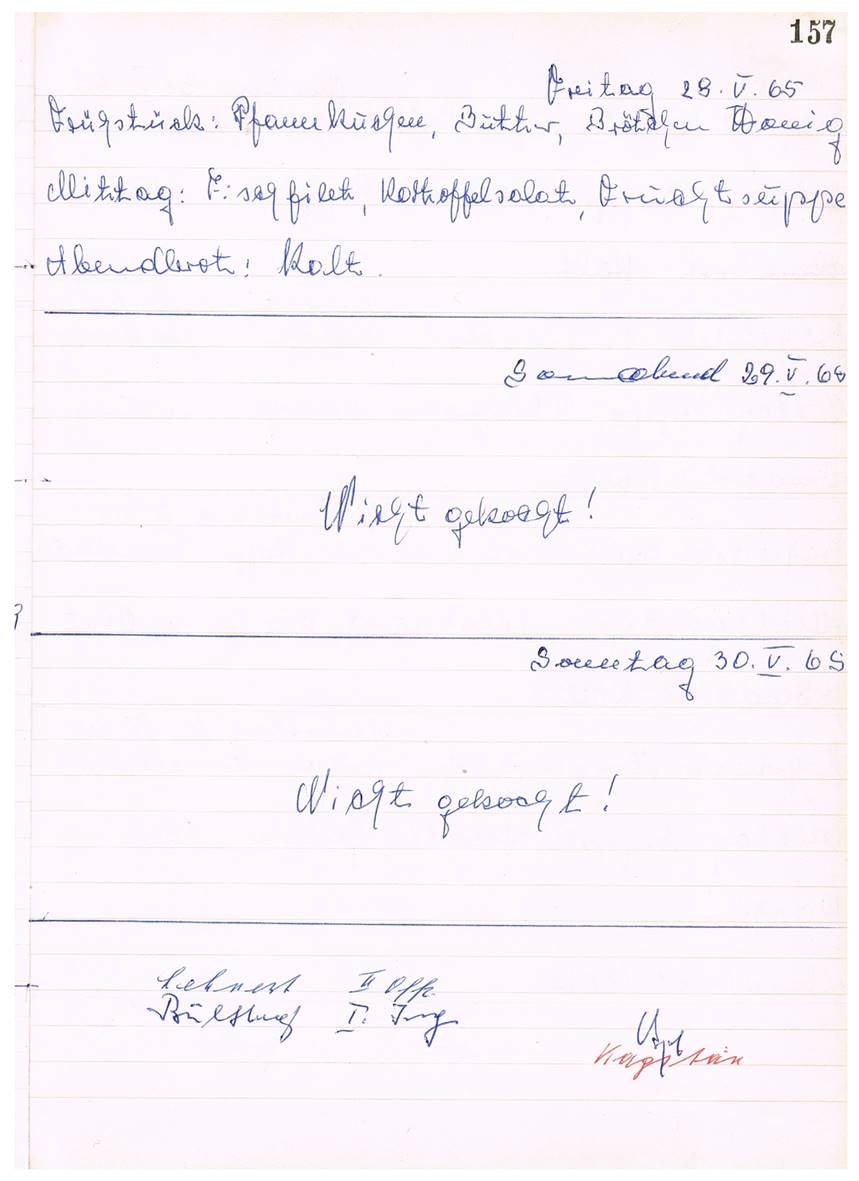 157
Freitag 28. V. 65
Frühstück: Pfannkuchen, Butter, Brötchen Honig
Mittag: Fischfilet, Kartoffelsalat, Fruchtsuppe
Abendbrot: Kalt.
Sonnabend 29. V. 65
Nicht gekocht!
Sonntag 30. V. 65
Nicht gekocht!
Lehnert II Off.
I. Ing
Kapitän